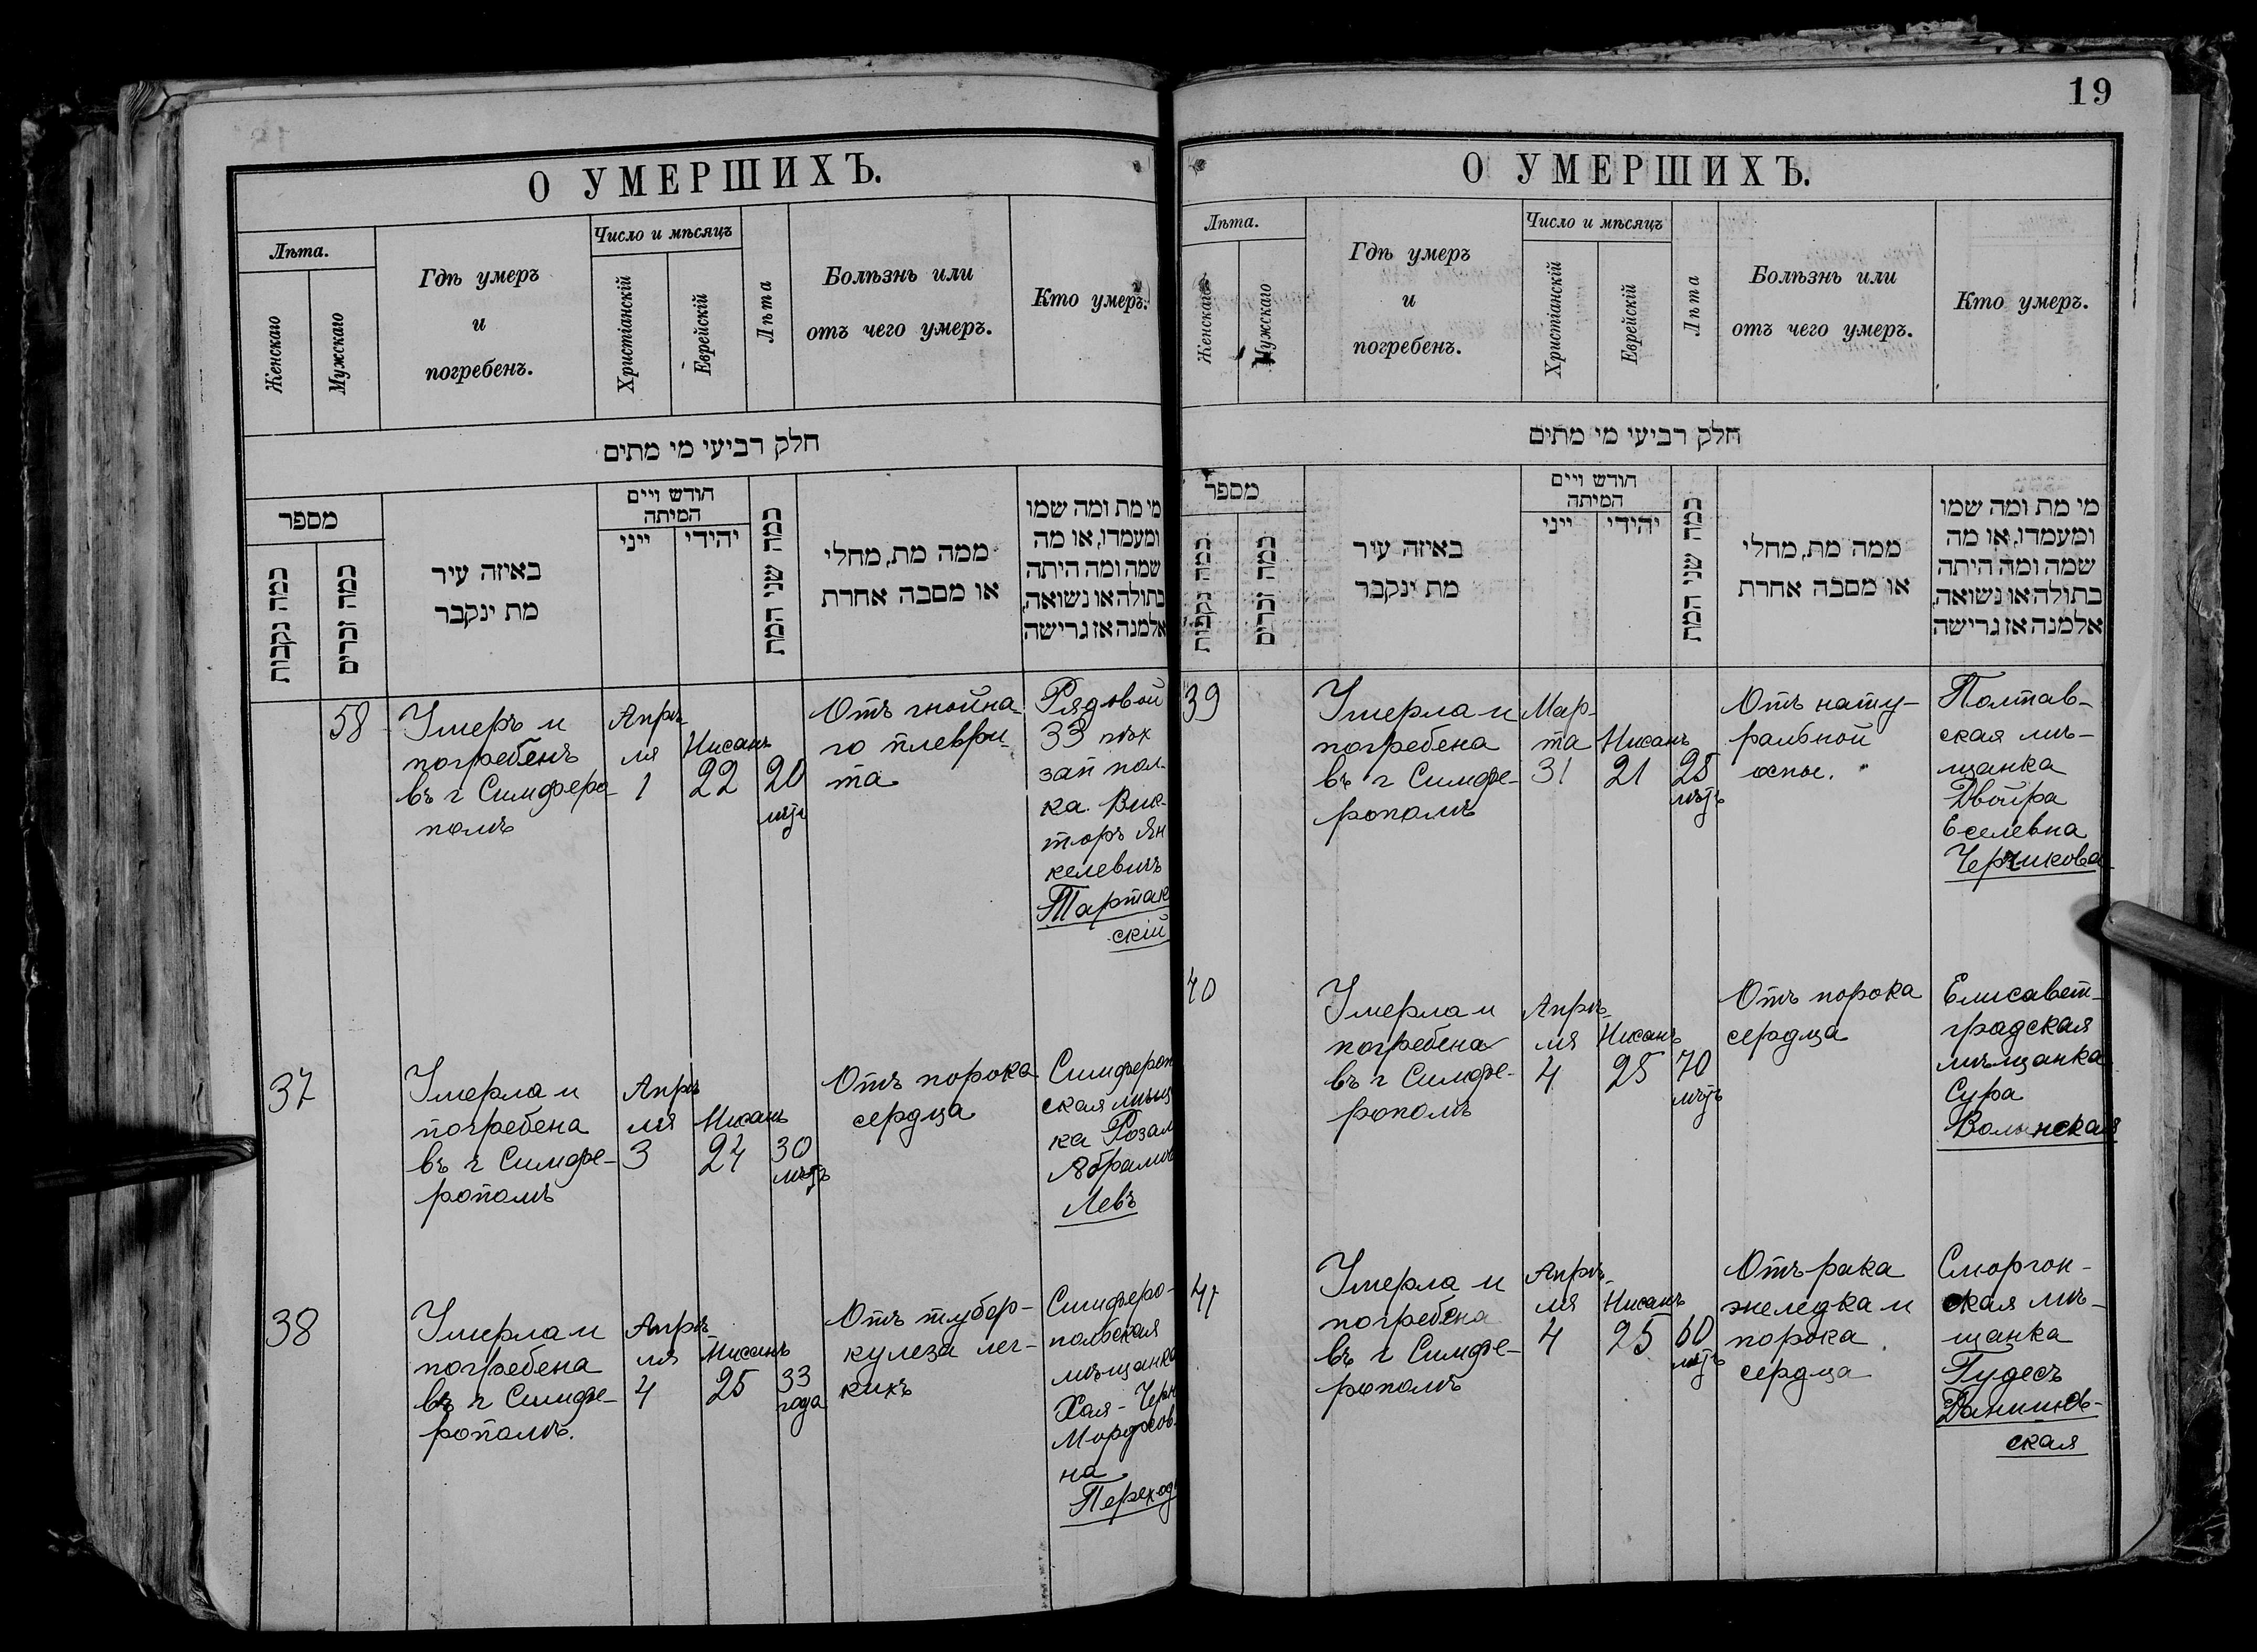 О УМЕРШИХЪ.
Лѣта.
Женскаго
Мужскаго
Гдѣ умеръ
и
погребенъ.
Число и мѣсяцъ
Христіанскій
Еврейскій
Лѣта
Болѣзнь или
отъ чего умеръ.
Кто умеръ.
חלק רביעי מי מתים
מספר
כמה נקבות
כמה זכרים
באיזה עיר
מת ינקבר
חודש ויים
המיתה
ייני
יהודי
כמה שני המת
ממה מת, מחלי
או מסבה אחרת
מי מת ומה שמו
ומעמדו, או מה
שמה ומה היתה
בתולה או נשואה,
אלמנה אז גרישה
58
Умеръ и
погребенъ
въ г Симферо
полѣ
Апрѣ
ля
1
Нисанъ
22
20
лѣтъ
Отъ гнойна-
го плеври-
та
Рядовой
33 пѣх
зап пол-
ка Вик-
торъ Ян
келевичъ
Тартак
скій
37
Умерла и
погребена
въ г Симфе-
рополѣ
Апрѣ
ля
3
Нисанъ
24
30
лѣтъ
Отъ порока
сердца
Симфероп
ская мѣщ
ка Розал
Абрамов
Левъ
38
Умерла и
погребена
въ г Симфе-
рополѣ.
Апрѣ-
ля
4
Нисанъ
25
33
года
Отъ тубер-
кулеза лег-
кихъ
Симферо-
польская
мѣщанка
Хая-Черн
Мордхов-
на
Переход
19
О УМЕРШИХЪ.
Лѣта.
Женскаго
Мужскаго
Гдѣ умеръ
и
погребенъ.
Число и мѣсяцъ
Христіанскій
Еврейскій
Лѣта
Болѣзнь или
отъ чего умеръ.
Кто умеръ.
חלק רביעי מי מתים
מספר
כמה נקבות
כמה זכרים
באיזה עיר
מת ינקבר
חודש ויים
המיתה
ייני
יהודי
כמה שני המת
ממה מת, מחלי
או מסבה אחרת
מי מת ומה שמו
ומעמדו, או מה
שמה ומה היתה
בתולה או נשואה,
אלמנה אז גרישה
39
Умерла и
погребена
въ г Симфе-
рополѣ
Мар-
та
31
Нисанъ
21
25
лѣтъ
Отъ нату-
ральной
оспы.
Полтав-
ская мѣ-
щанка
Двойра
Еселевна
Черчикова
40
Умерла и
погребена
въ г Симфе-
рополѣ
Апрѣ-
ля
4
Нисанъ
25
70
лѣтъ
Отъ порока
сердца
Елисавет-
градская
мѣщанка
Сура
Волынская
41
Умерла и
погребена
въ г Симфе-
рополѣ
Апрѣ-
ля
4
Нисанъ
25
60
лѣтъ
Отъ рака
желудка и
порока
сердца
Сморгон-
ская мѣ-
щанка
Гудесъ
Данишев-
ская